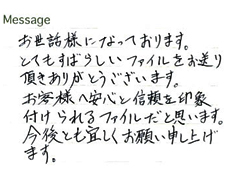 Message
お世話様になっております。
とてもすばらしいファイルをお送り
頂きありがとうございます。
お客様へ安心と信頼を印象
付けられるファイルだと思います。
今後とも宜しくお願い申し上げ
ます。